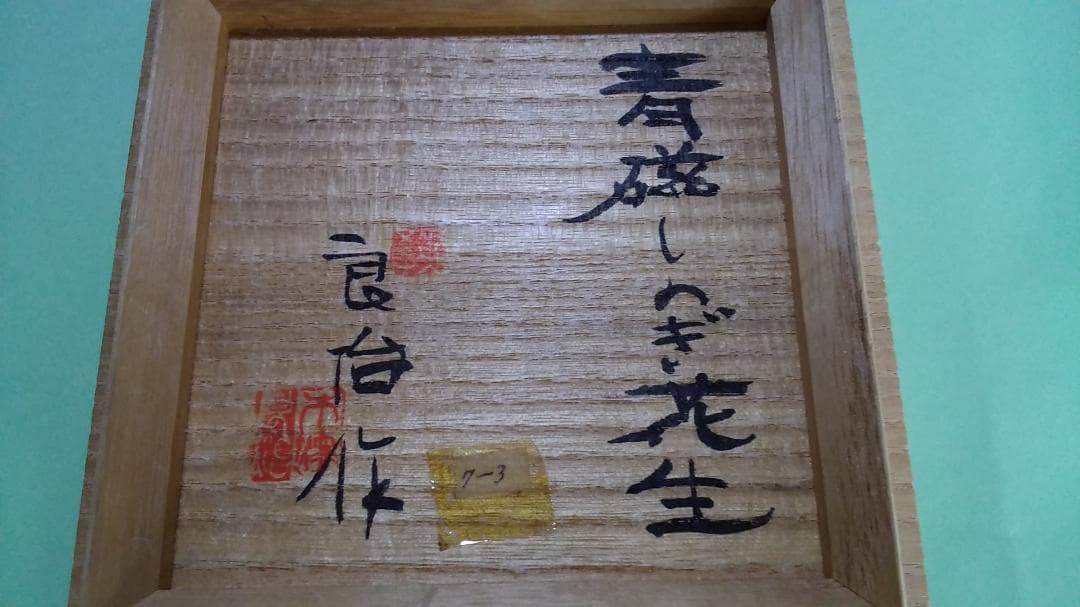 青磁しのぎ花生
良台作
7-3